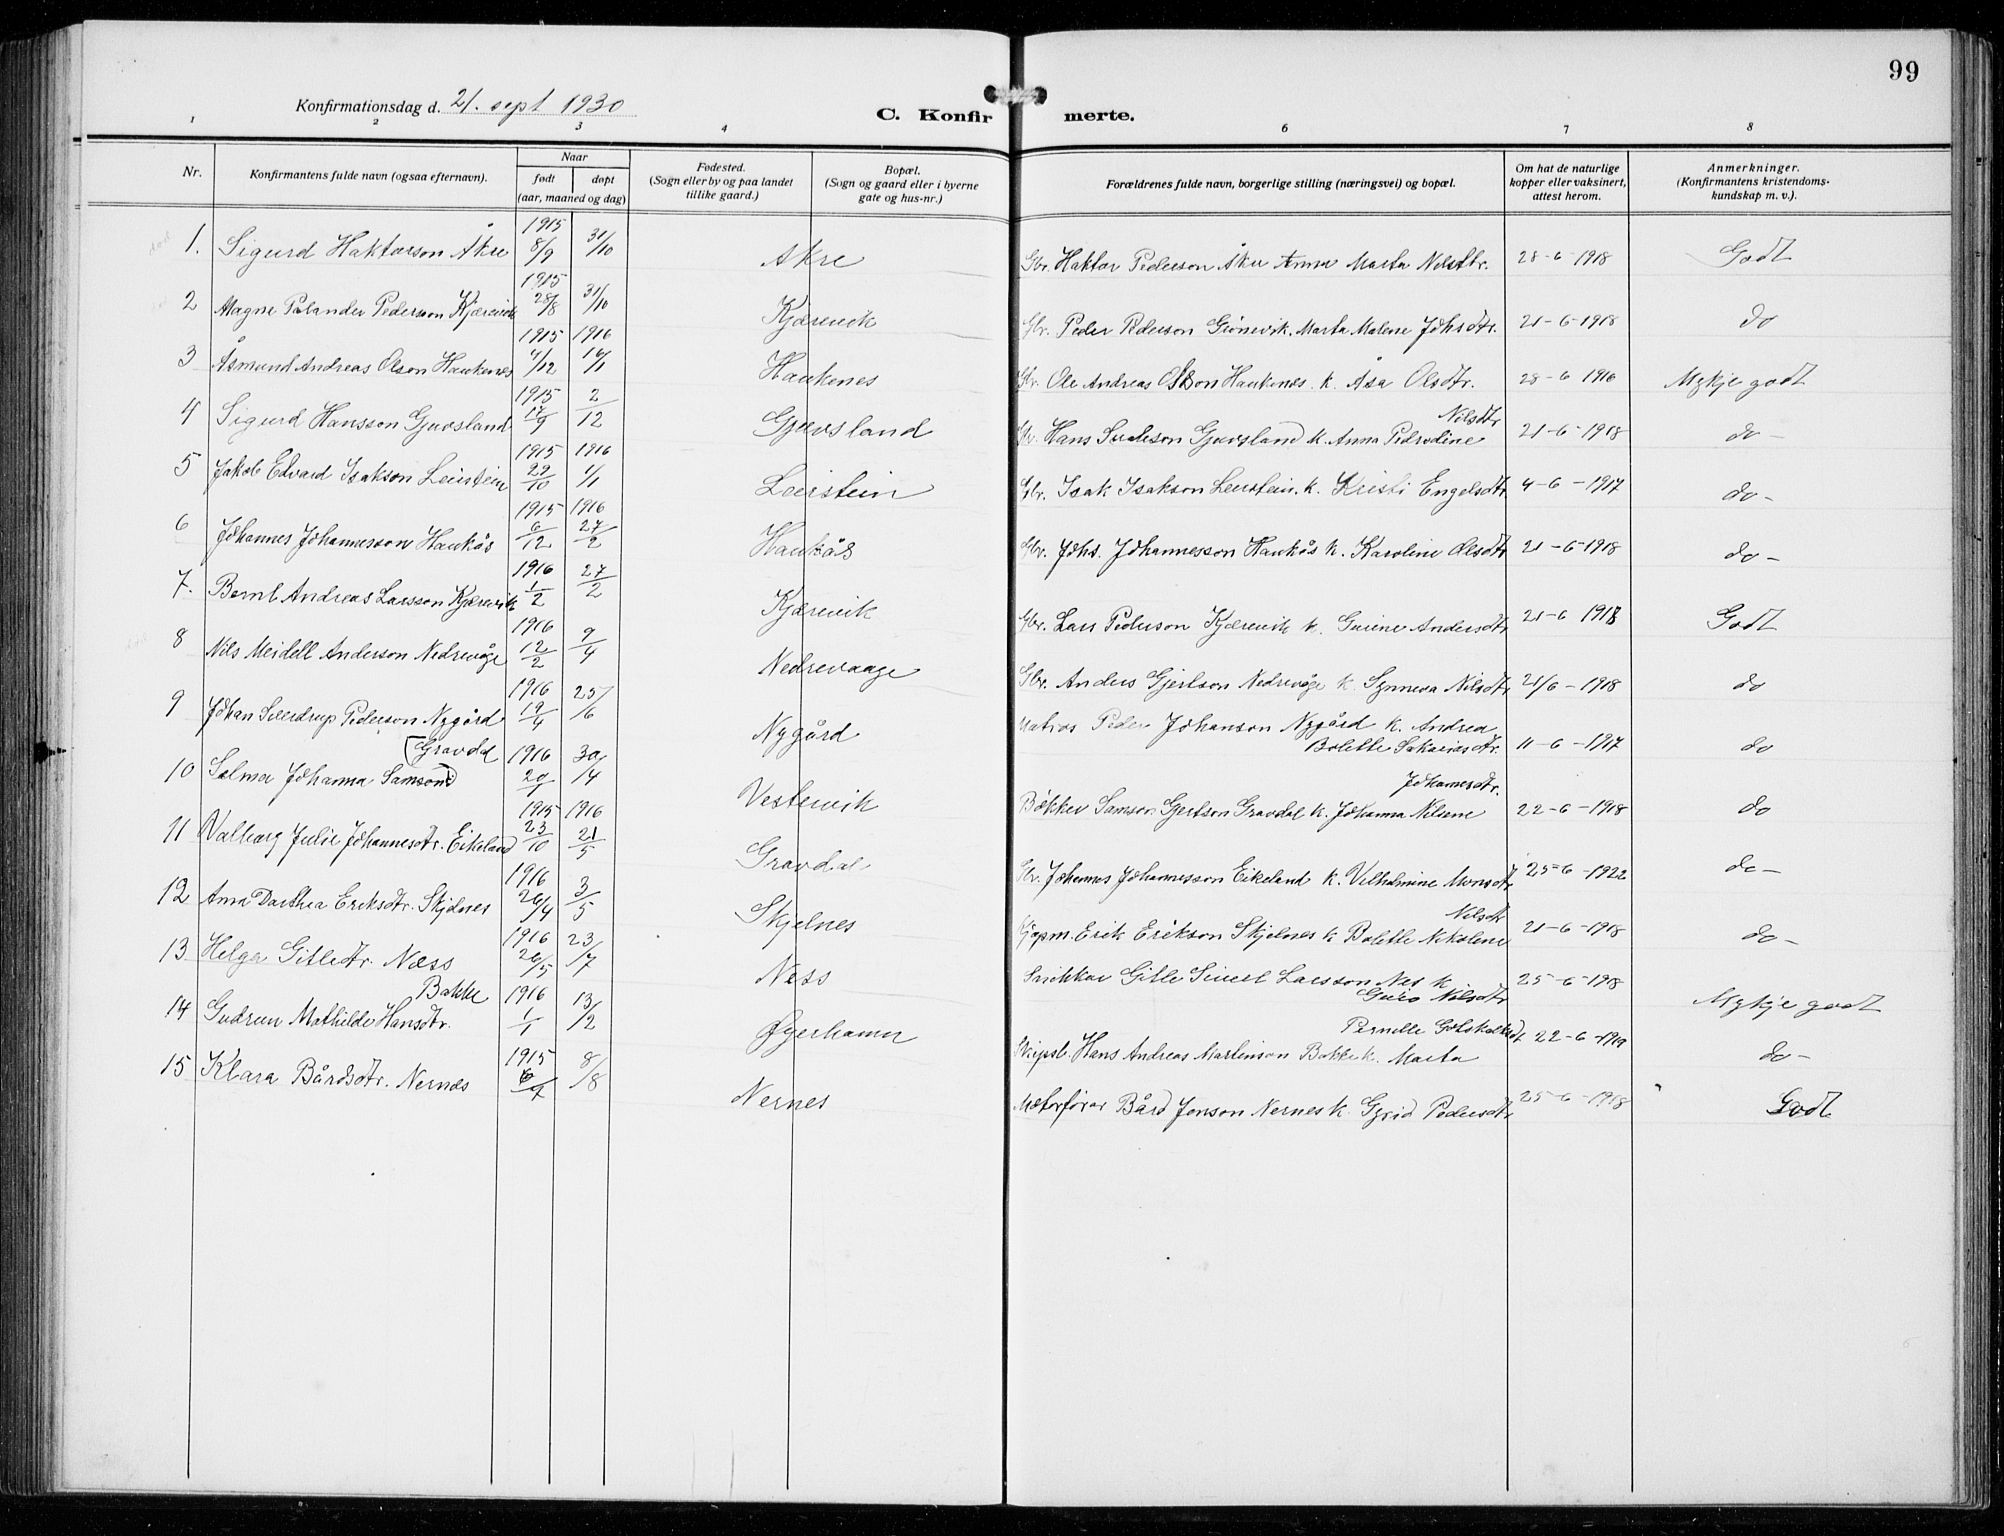 99
Konfirmationsdag d. 21. sept 1930
C. Konfirmerte.
1 2 3 4 6 7 8
Nr. Konfirmantens fulde navn (ogsaa efternavn). Naar født døpt (aar, maaned og dag) Fødested. (Sogn eller by og paa landet tillike gaard.) Bopæl. (Sogn og gaard eller i byerne gate og hus-nr.) Forældrenes fulde navn, borgerlige stilling (næringsvei) og bopæl. Om hat de naturlige kopper eller vaksinert, attest herom. Anmerkninger. (Konfirmantens kristendomskundskap m. v.).
1. Sigurd Haktorson Åkre 1915 8/9 31/10 Åkre Gbr. Haktor Pederson Åkre Anna Marta Nilsdtr. 28-6-1918 Godt
2 Magne Palander Pederson Kjærevik 1915 28/8 31/10 Kjærevik Gbr. Peder Pederson Marta Malene Johsdtr. 21-6-1918 do
3 Åsmund Andreas Olson Haukenes 1915 4/12 1916 16/1 Haukenes Gbr. Ole Andreas Olson Haukenes k. Åsa Olsdtr. 28-6-1916 Mykje godt
4 Sigurd Hansson Gjuvsland 1915 17/9 2/12 Gjuvsland Gbr. Hans Gjuvsland k. Anna Pedrodine Nilsdtr 21-6-1918 do-
5 Jakob Edvard Isakson Leirstein 1915 29/10 1916 1/1 Leirstein Gbr. Isak Isakson Leirstein k. Kristi Engelsdtr 4-6-1917 do-
6 Johannes Johannesson Haukås 1915 6/12 1916 27/2 Haukås Gbr. Johs. Johannesson Haukås k. Karoline Olsdtr 21-6-1918 do-
7. Bernt Andreas Larsson Kjærevik 1916 1/2 27/2 Kjærevik Gbr. Lars Pederson Kjærevik k. Gurine Andersdtr 21-6 1918 Godt
8 Nils Meidell Anderson Nedrevåge 1916 12/2 9/4 Nedrevaage Gbr. Anders Gjertson Nedrevåge k. Synneva Nilsdtr 21/6-1918 do
9 Johan Sverdrup Pederson Nygård 1916 19/4 25/6 Nygård Matros Peder Johanson Nygård k. Andrea Bolette Sakariasdtr. 11-6-1917 do
10 Selma Johanna Samsond (Gravdal 1916 20/1 30/14 Vestervik Bøkker Samson Gjertson Gravdal k. Johanna Nilsine Johannesdtr. 22-6-1918 do
11 Valborg Julie Johannesdtr. Eikeland 1915 23/10 1916 21/5 Gravdal Gbr. Johannes Johannesson Eikeland k. Vilhelmine Monsdtr 25-6-1922 do-
12 Anna Darthea Eriksdtr. Skjelnes 1916 26/4 3/5 Skjelnes Erik Erikson Skjelnes k Bolette Nikolene Nilsdtr 21-6-1918 do-
13 Helga Gitledtr. Næss 1916 26/5 23/7 Ness Gitle Larsson Nes k Guro Nilsdtr 25-6-1918 Mykje godt
14 Gudrun Mathilde Hansdtr. Bakke 1916 1/1 13/2 Øyerhamn Skipsb. Hans Andreas Martinson Bakke k. Marta Pernille Gotskalksdt 22-6-1919 do-
15 Klara Bårdsdtr. Nernes 1915 6/7 8/8 Nernes Motorfører Bård Jonson Nernes k. Gyrid Pedersdtr 25-6-1918 Godt